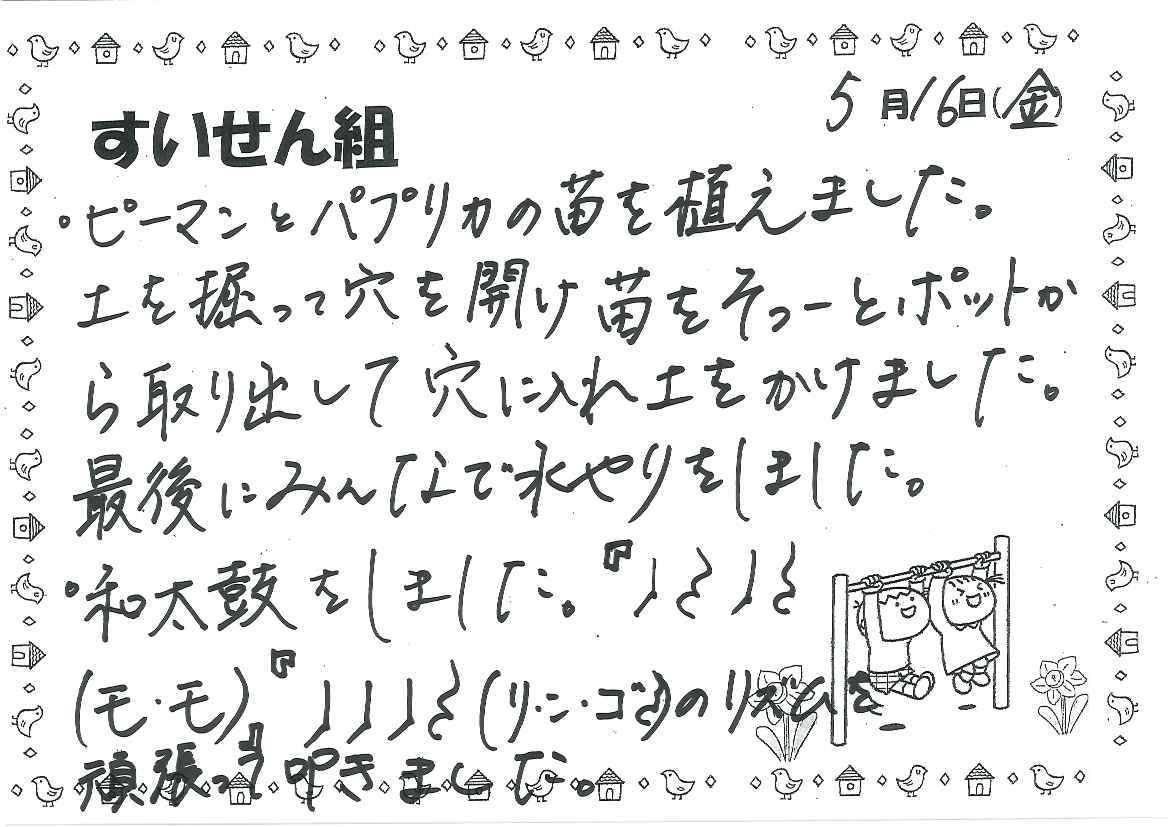 5月16日(金)
すいせん組
・ピーマンとパプリカの苗を植えました。
土を掘って穴を開け苗をそっーとポットか
ら取り出して穴に入れ土をかけました。
最後にみんなで水やりをしました。
・和太鼓をしました。『♩𝄽♩𝄽
(モ・モ)』『♩♩♩𝄽(リ・ン・ゴ)』のリズムを
頑張って叩きました。